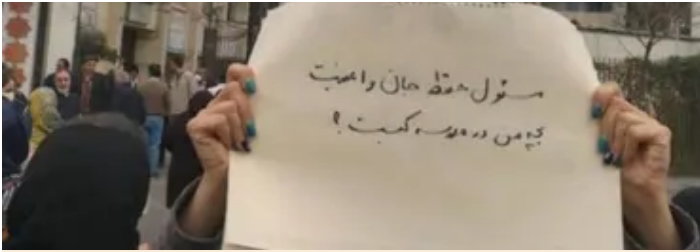 مسئول حفظ جان و امنیت
بچه من در مدرسه کیست؟